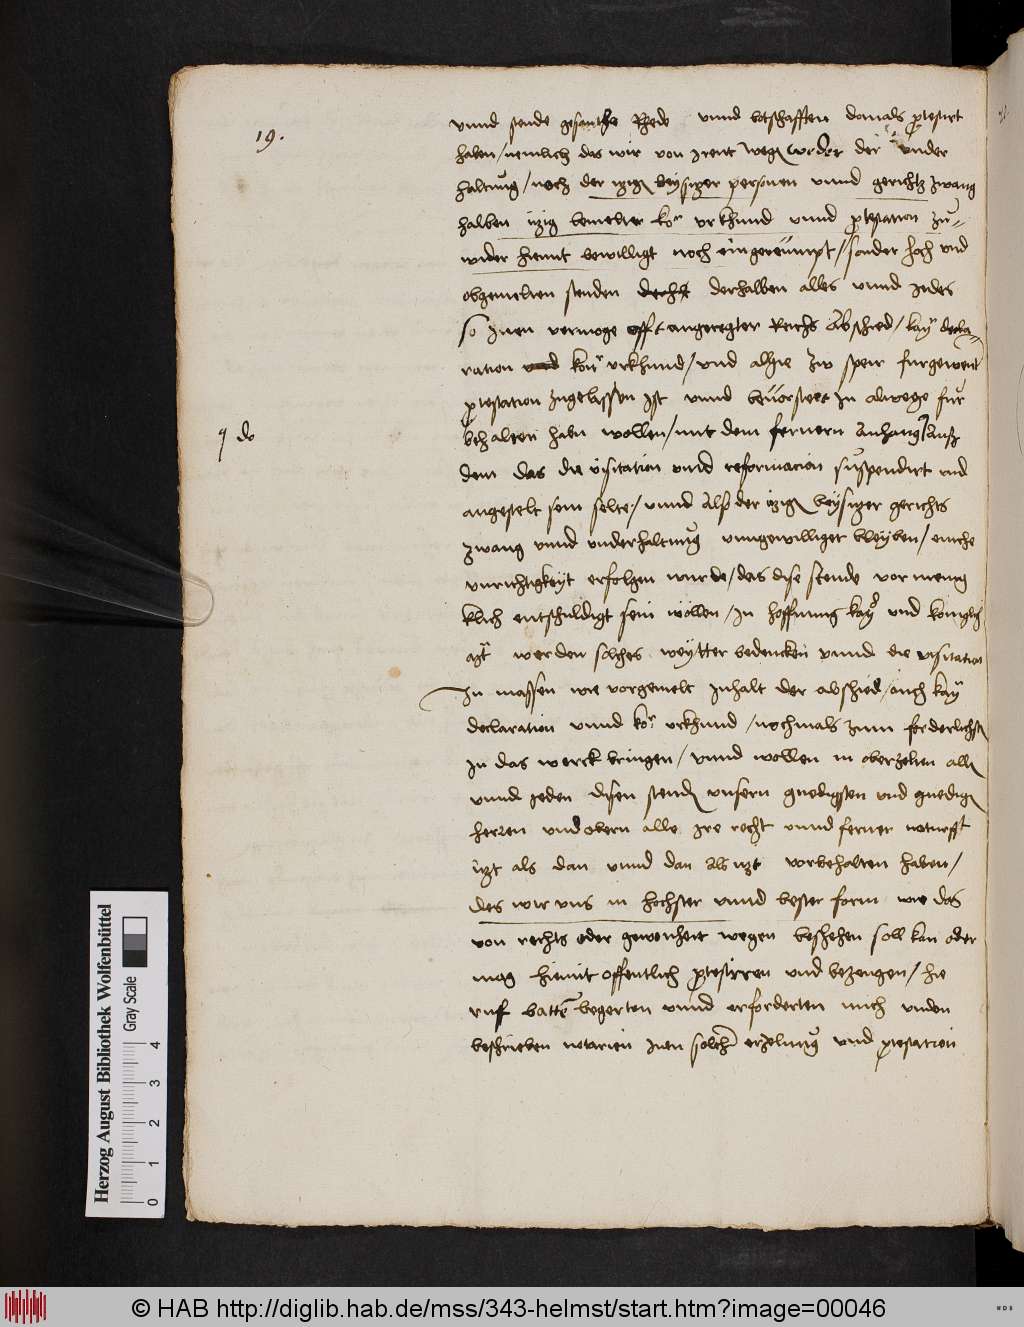 19.
vnnd stende gesanthe Rhede vnnd botschafften domals protestirt
haben / nemlich das wir von irent wegen weder der vnder
haltung / noch der itzigen beysitzer personen vnnd gerichtz zwang
halben itzig bemelter ko. vrkhund vnnd protestation zu=
wider hiemit bewilligt noch eingereumpt / sonder hoch vnd
obgemelten stenden derhalben alles vnnd jedes
so Inen vermoge offt angeregter Reichs Abschied / kay. decla=
ration kon. vrkhund / vnd alhie zw speir furgewent
protestation zugelassen ist vnnd beuorsteet In alwege fur
q do
behalten habn wollen / mit dem fernern Anhang / Auß
dem das die visitation vnnd reformacion suspendirt vnd
angestelt sein solte / vnnd Also der itzigen beysitzer gerichts
zwang vnnd vnderhaltung vnngewilliget bleyben / eniche
vnrichtigkeyt erfolgen wurde / das dise stende vor menig
klich entschuldigt sein wöllen / In hoffnung kay. vnd koniglich
Mt. werden solches weytter bedencken vnnd die visitation
In massen wie vorgemelt Inhalt der abschied / auch kay.
declaration vnnd ko. vrkhund / nochmals zum forderlichsten
In das werck bringen / vnnd wollen in oberzelten allen
vnnd jeden disen stenden vnsern gnedigsten vnd gnedigen
herren vnd obern alle ire recht vnnd ferner noturfft
itzt als dan vnnd dan als itzt vorbehalten haben /
des wir vns in hochster vnnd bester form wie das
von rechts oder gewonheit wegen beshehen soll kan oder
mag hiemit offentlich protestiren vnd bezeugen / hie
ruf batten begerten vnnd erforderten mich vnden
beschrieben notarien Inen solcher erzelung vnd protestation
Herzog August Bibliothek Wolfenbüttel
Gray Scale
0 1 2 3 4
© HAB http://diglib.hab.de/mss/343-helmst/start.htm?image=00046